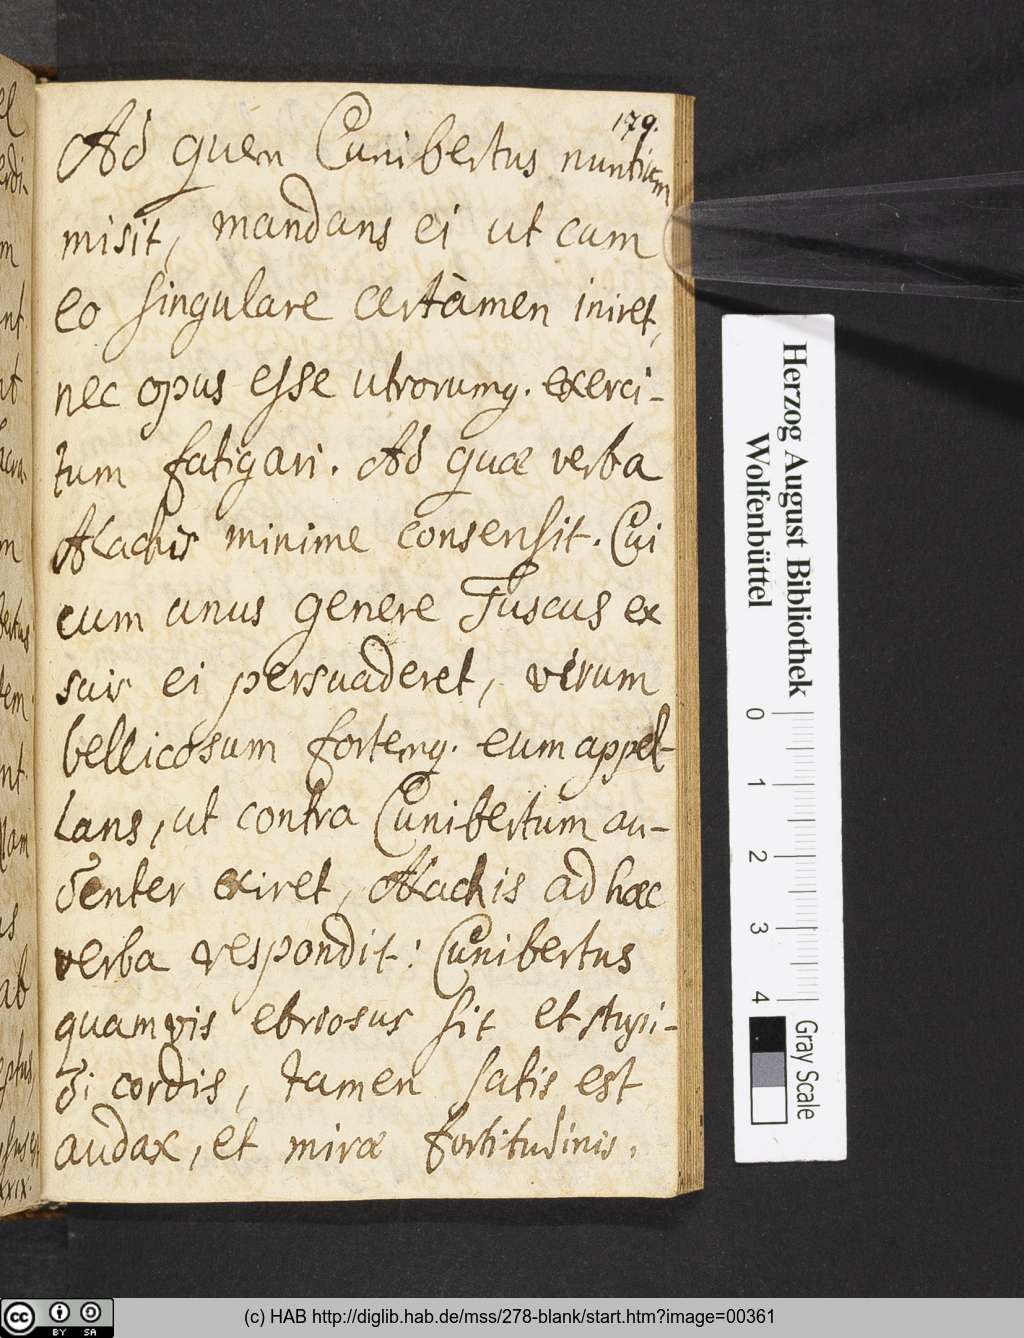 179.
Ad quem Cunibertus nuntium
misit, mandans ei ut cum
eo singulare certàmen iniret,
nec opus esse utrorumq. exerci-
tum fatigari. Ad quæ verba
Alachis minime consensit. Cui
cum unus genere Tuscus ex
suis ei persuaderet, virum
bellicosum fortemq. eum appel-
lans, ut contra Cunibertum au-
denter exiret, Alachis ad hæc
verba respondit: Cunibertus
quamvis ebriosus sit et stupi-
di cordis, tamen satis est
audax, et miræ fortitudinis.
Herzog August Bibliothek
Wolfenbüttel
0
1
2
3
4
Gray Scale
cc BY SA
(c) HAB http://diglib.hab.de/mss/278-blank/start.htm?image=00361